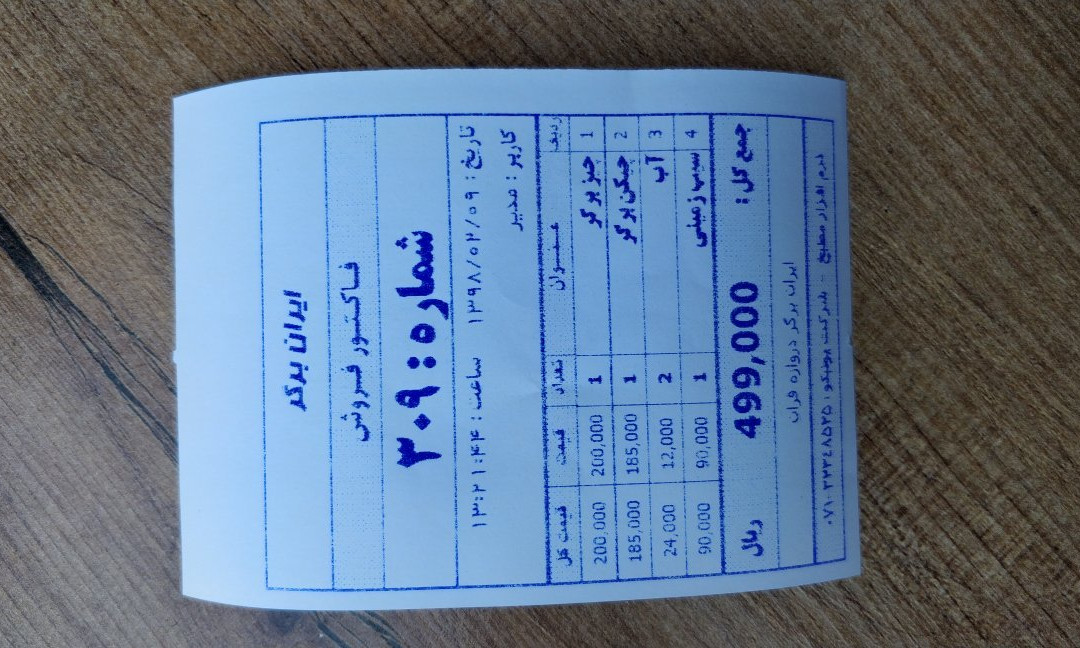 ایران برگر
فاکتور فروش
شماره : ۳۰۹
تاریخ : ۱۳۹۸/۰۲/۰۹ ساعت : ۱۳:۲۱:۴۴
کاربر : مدیر
ردیف عنوان تعداد قیمت قیمت کل
1 چیز برگر 1 200,000 200,000
2 چیکن برگر 1 185,000 185,000
3 آب 2 12,000 24,000
4 سیب زمینی 1 90,000 90,000
جمع کل : 499,000 ریال
ایران برگر دروازه قران
نرم افزار مطبخ - شرکت